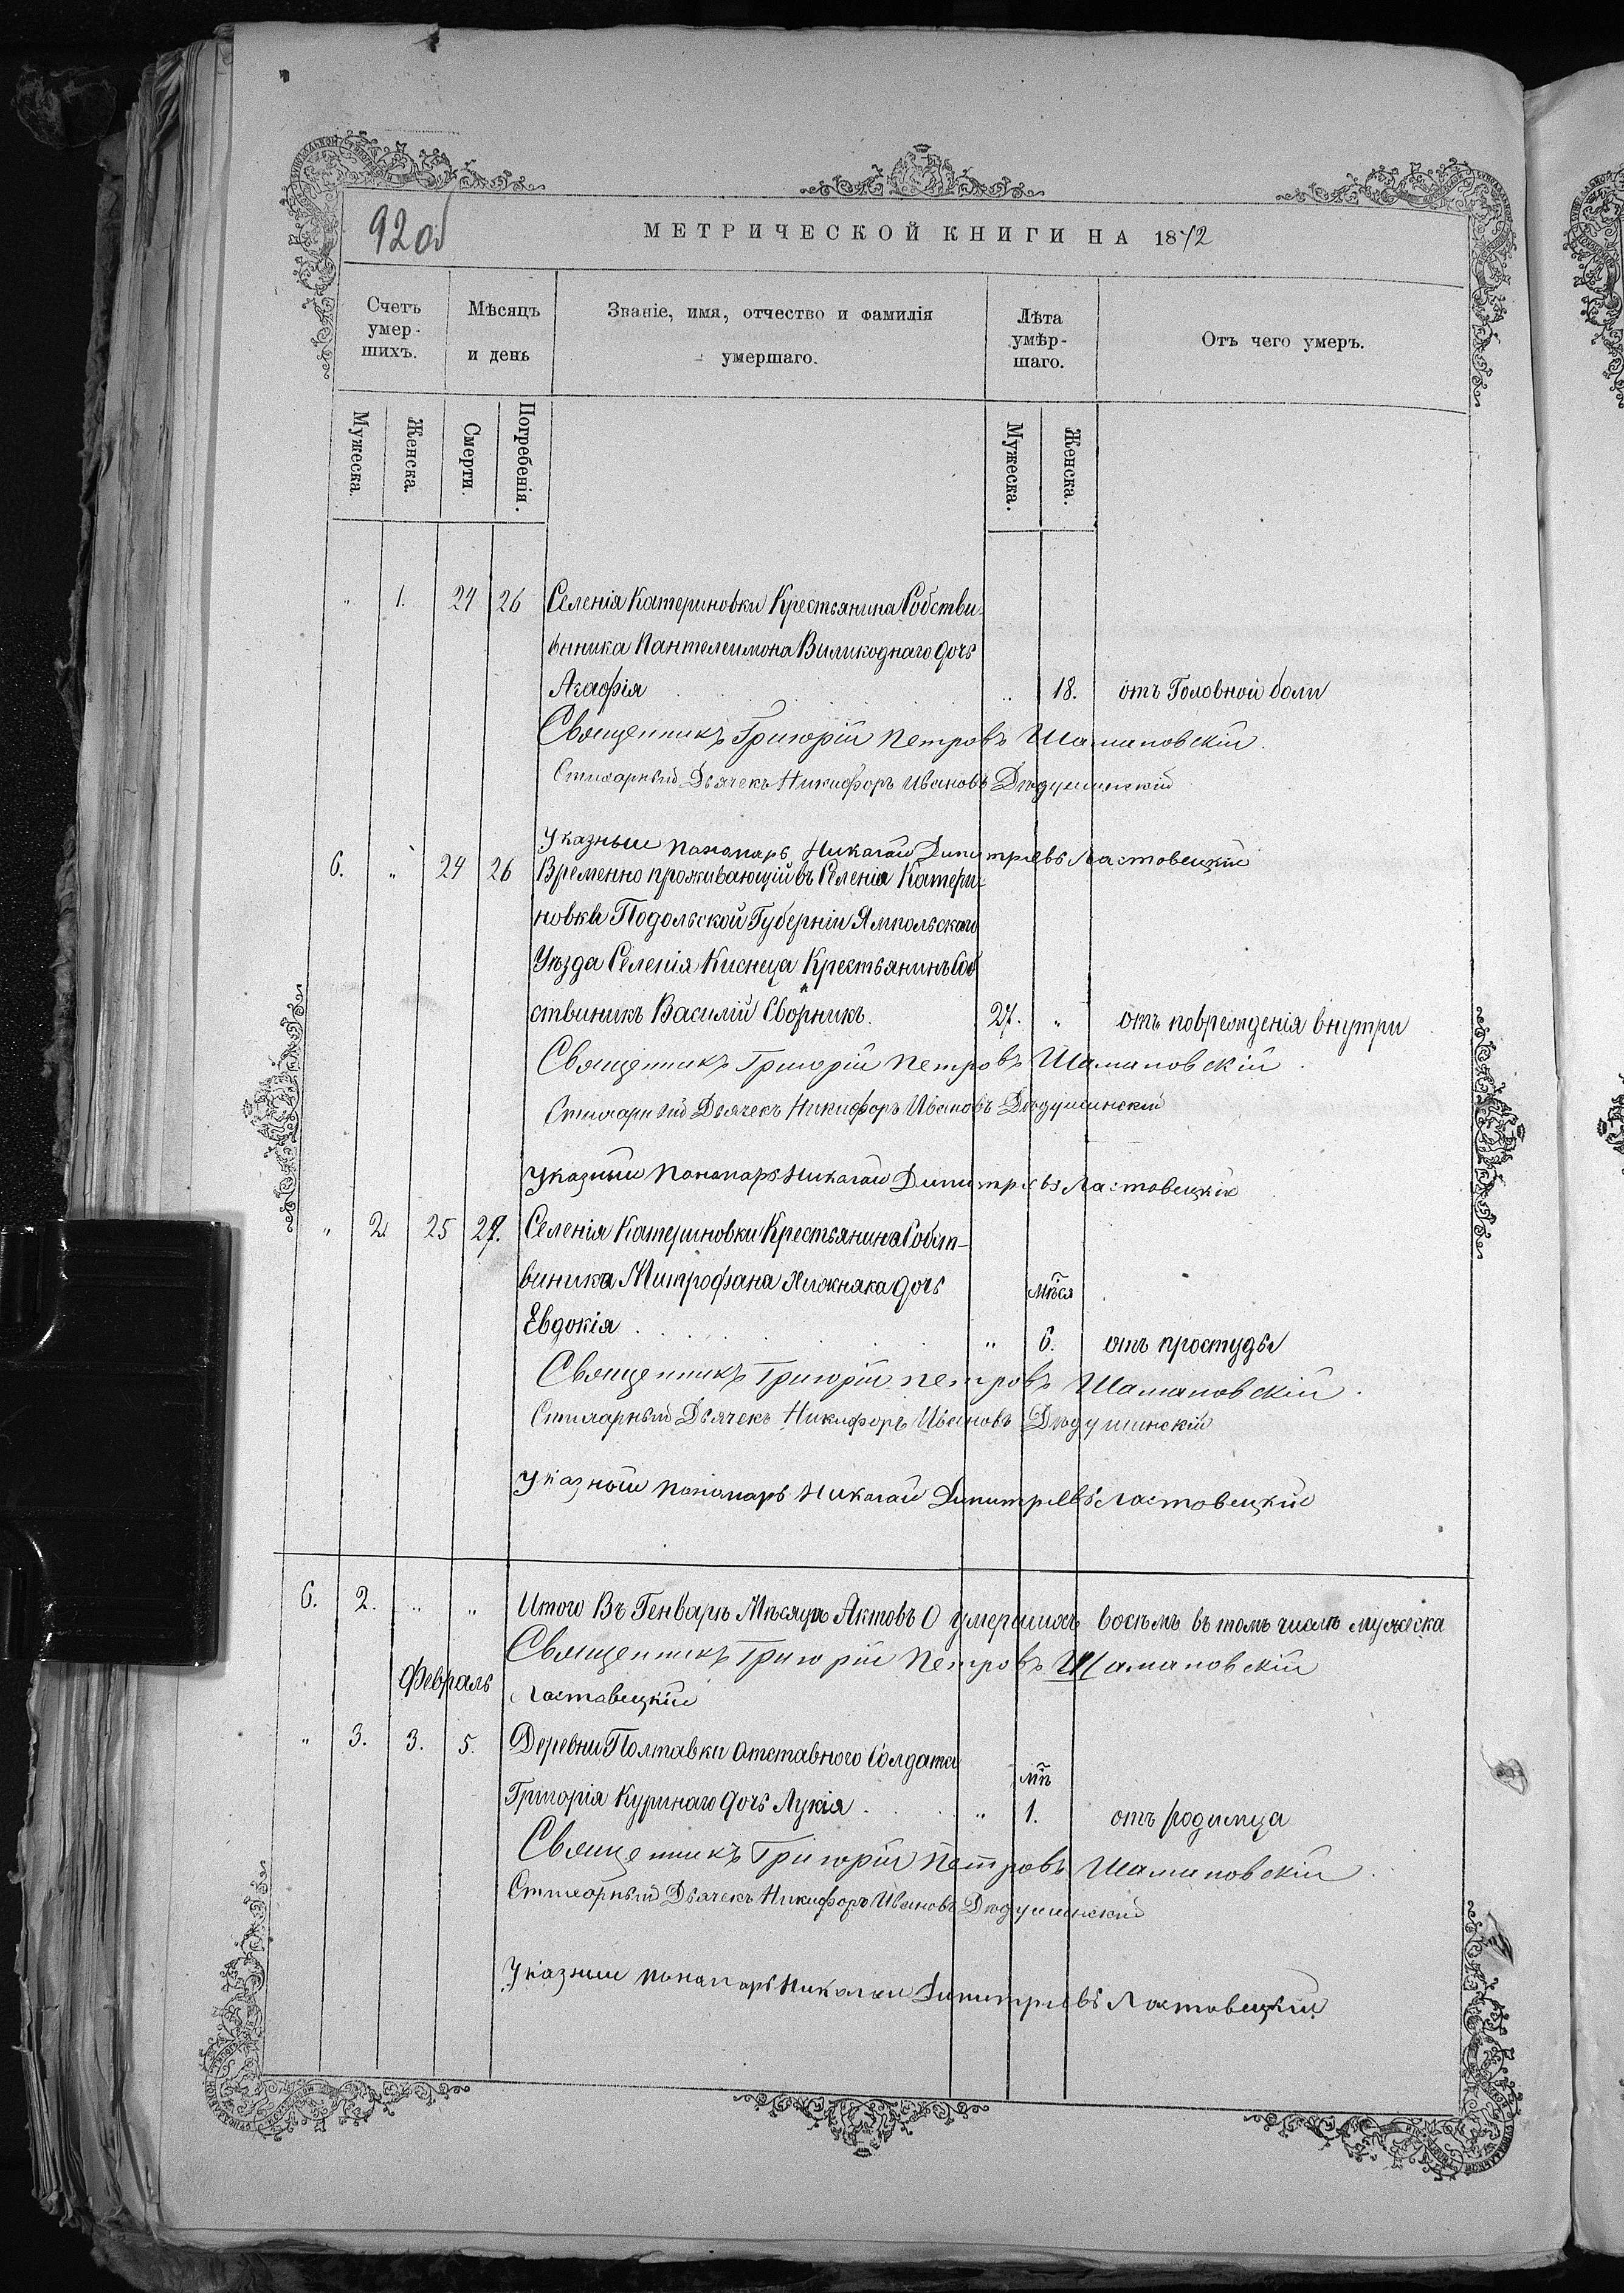 92об
МЕТРИЧЕСКОЙ КНИГИ НА 1872
Счетъ умер-шихъ.
Мѣсяцъ и день
Званіе, имя, отчество и фамилія умершаго.
Лѣта умѣр-шаго.
Отъ чего умеръ.
Мужеска.
Женска.
Смерти.
Погребенія.
Мужеска.
Женска.
„ 1. 24 26 Селенія Катериновки Крестьянина Собстви
ѣнника Пантелеимона Виликоднаго дочь
Агафія „ 18. отъ Головной боли
Священникъ Григорій Петровъ Шамановскій.
Стихарный Дьячекъ Никифоръ Ивановъ Дюдушинскій
Указный Пономарь Николай Димитріевъ Ластовецкій
6. „ 24 26 Временно проживающій въ Селеніи Катери-
новки Подольской Губерніи Ямпольскаго
Уѣзда Селенія Киснеца Крестьянинъ Соб
ственикъ Василій Сборникъ. 27. „ отъ поврежденія внутри
Священникъ Григорій Петровъ Шамановскій.
Стихарный Дьячекъ Никифоръ Ивановъ Дюдушинскій
Указный Пономарь Николай Димитріевъ Ластовецкій
„ 2. 25 27. Селенія Катериновки Крестьянина Собст-
веника Митрофана Хижняка дочь мѣся
Евдокія „ 6. отъ простуды
Священникъ Григорій Петровъ Шамановскій.
Стихарный Дьячекъ Никифоръ Ивановъ Дюдушинскій
Указный Пономарь Николай Димитріевъ Ластовецкій
6. 2. „ „ Итого Въ Генварѣ Мѣсяцѣ Актовъ О умершихъ восѣмъ въ томъ числѣ мужеска
Священникъ Григорій Петровъ Шамановскій
Февраль Ластовецкій
„ 3. 3. 5. Деревни Полтавки Отставного Солдата мць
Григорія Куринаго дочь Лукія „ 1. отъ родимца
Священникъ Григорій Петровъ Шамановскій.
Стихарный Дьячекъ Никифоръ Ивановъ Дюдушинскій
Указный Пономарь Николай Димитріевъ Ластовецкій